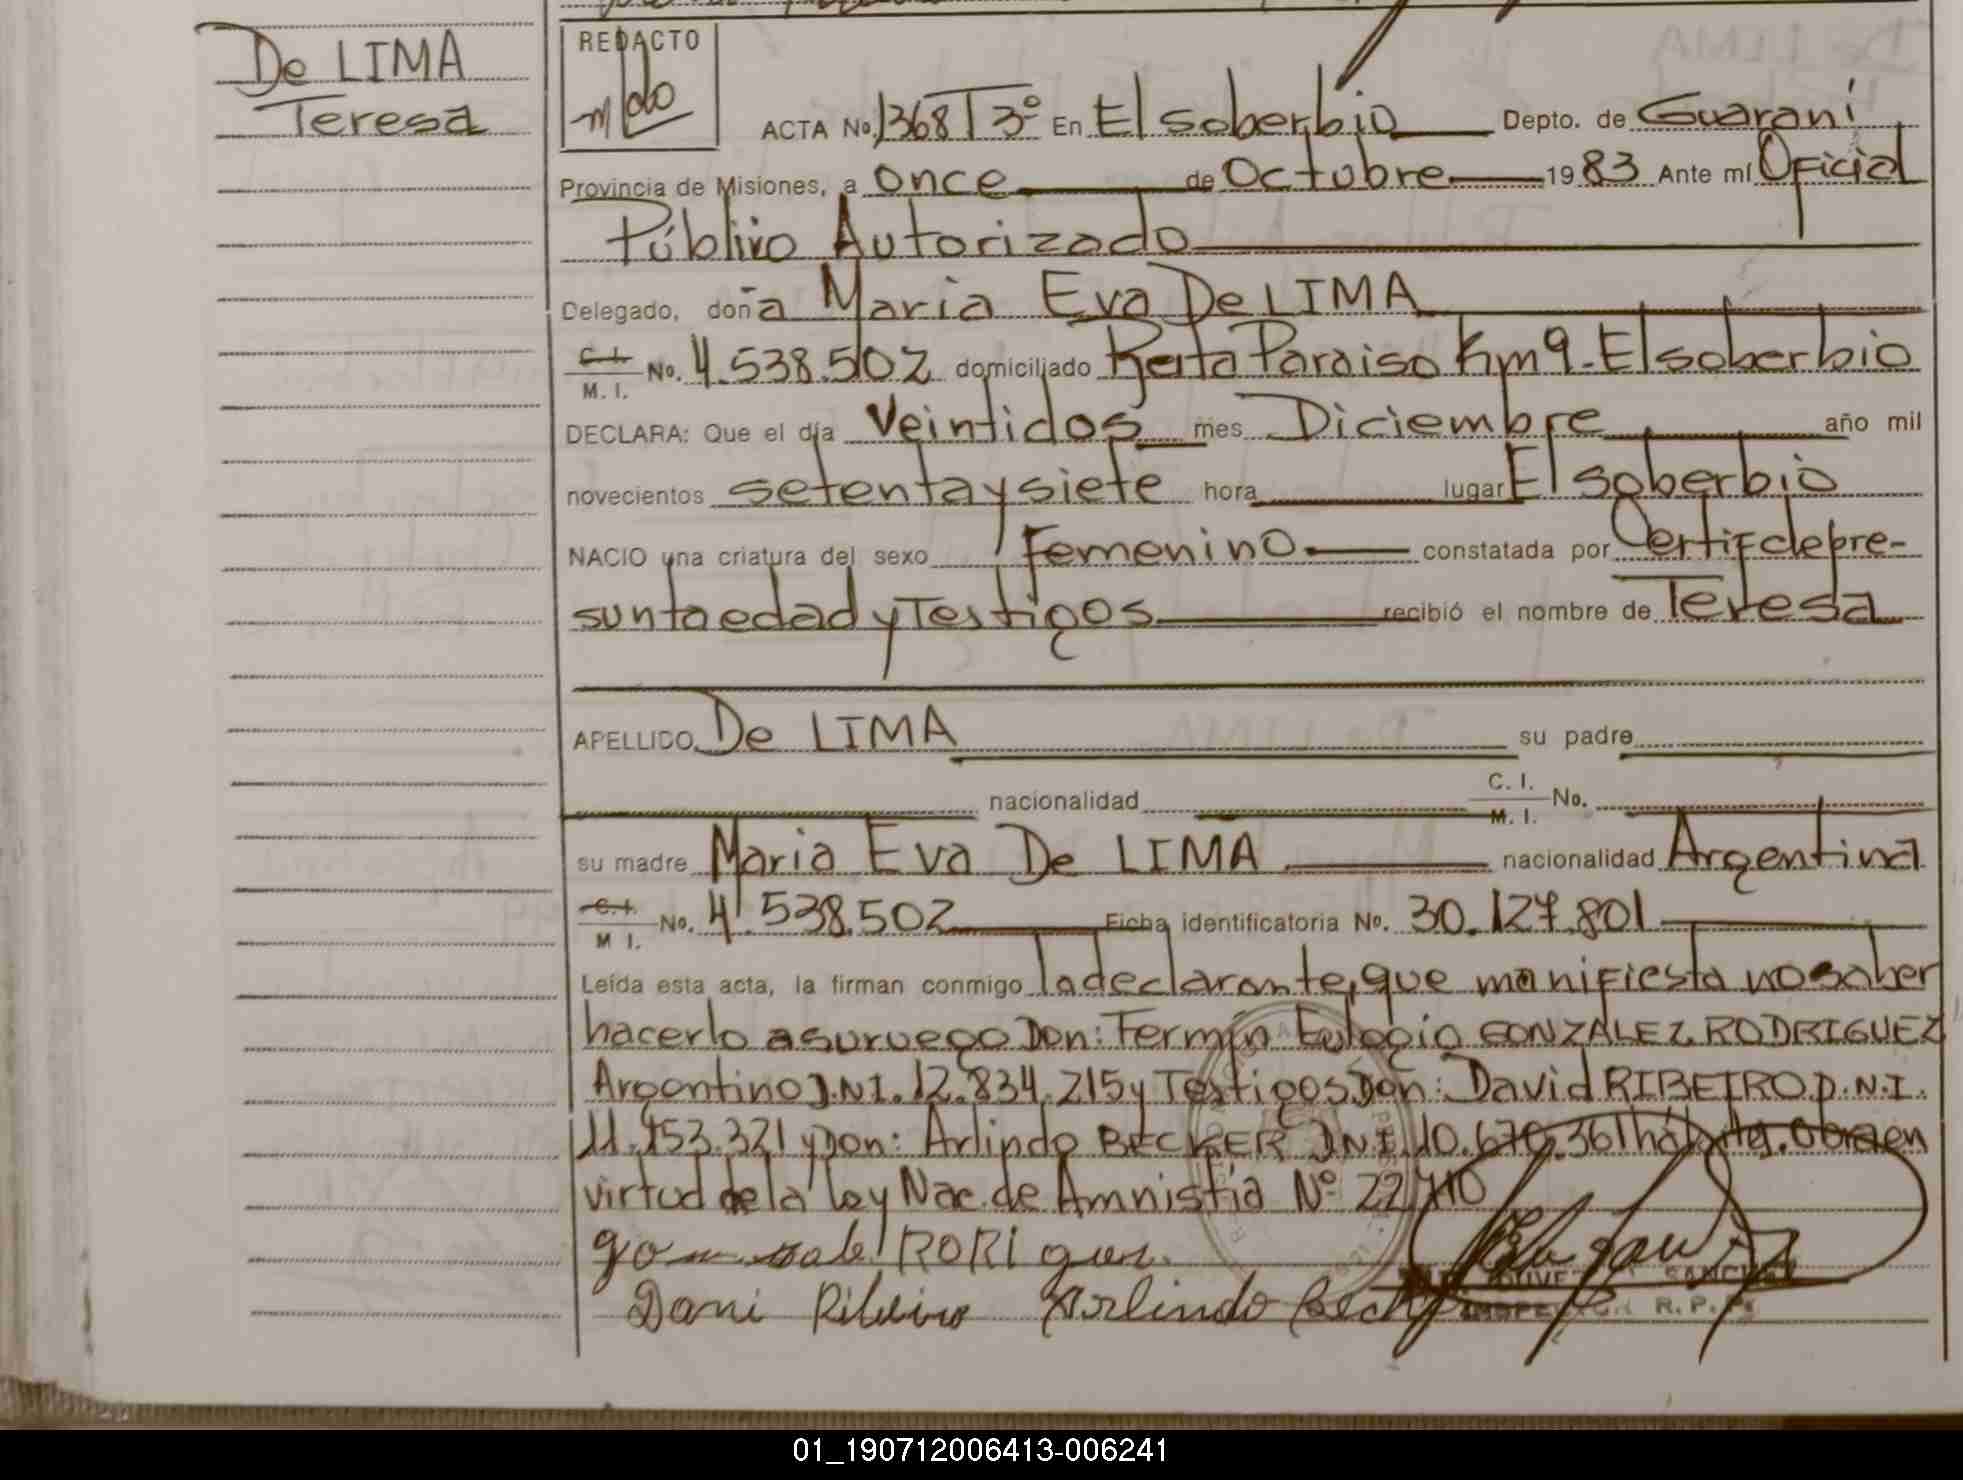 De LIMA
Teresa
REDACTO
ACTA No. 1368 T 3º En El soberbio Depto. de Guarani
Provincia de Misiones, a once de Octubre 1983 Ante mí Oficial
Público Autorizado
Delegado, doña Maria Eva De LIMA
C. I. / M. I. No. 4.538.502 domiciliado Paraiso Km 9 - El soberbio
DECLARA: Que el día veintidos mes Diciembre año mil
novecientos setenta y siete hora lugar El soberbio
NACIO una criatura del sexo Femenino constatada por Certif de pre-
sunta edad y Testigos recibió el nombre de Teresa
APELLIDO De LIMA su padre
nacionalidad C. I. / M. I. No.
su madre Maria Eva De LIMA nacionalidad Argentina
C. I. / M I. No. 4.538.502 Ficha identificatoria No. 30.127.801
Leída esta acta, la firman conmigo la declarante, que manifiesta no saber
hacerlo a su ruego Don: Fermín Eulogio GONZALEZ RODRIGUEZ
Argentino D.N.I. 12.834.215 y Testigos Don: David RIBEIRO D.N.I.
11.153.321 y Don: Arlindo BECKER D.N.I. 10.670.361 en
virtud de la ley Nac. de Amnistía Nº 22.410
RORI
Dani Ribeiro Arlindo
SANCHEZ
INSPECTOR R. P. P.
01_190712006413-006241